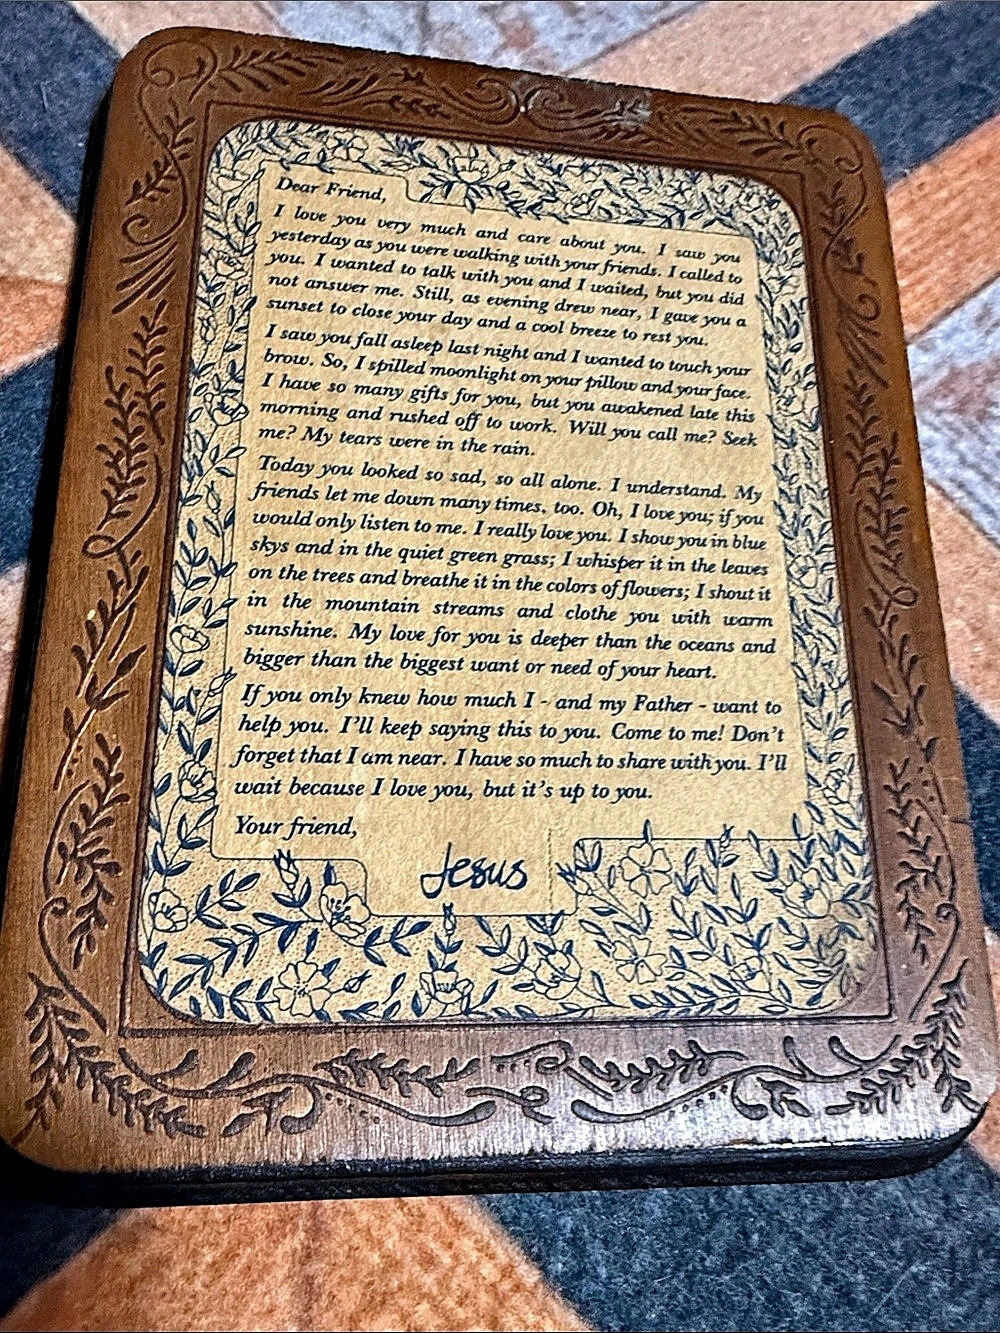 Dear Friend,
I love you very much and care about you. I saw you
yesterday as you were walking with your friends. I called to
you. I wanted to talk with you and I waited, but you did
not answer me. Still, as evening drew near, I gave you a
sunset to close your day and a cool breeze to rest you.
I saw you fall asleep last night and I wanted to touch your
brow. So, I spilled moonlight on your pillow and your face.
I have so many gifts for you, but you awakened late this
morning and rushed off to work. Will you call me? Seek
me? My tears were in the rain.
Today you looked so sad, so all alone. I understand. My
friends let me down many times, too. Oh, I love you; if you
would only listen to me. I really love you. I show you in blue
skys and in the quiet green grass; I whisper it in the leaves
on the trees and breathe it in the colors of flowers; I shout it
in the mountain streams and clothe you with warm
sunshine. My love for you is deeper than the oceans and
bigger than the biggest want or need of your heart.
If you only knew how much I - and my Father - want to
help you. I'll keep saying this to you. Come to me! Don't
forget that I am near. I have so much to share with you. I'll
wait because I love you, but it's up to you.
Your friend,
Jesus